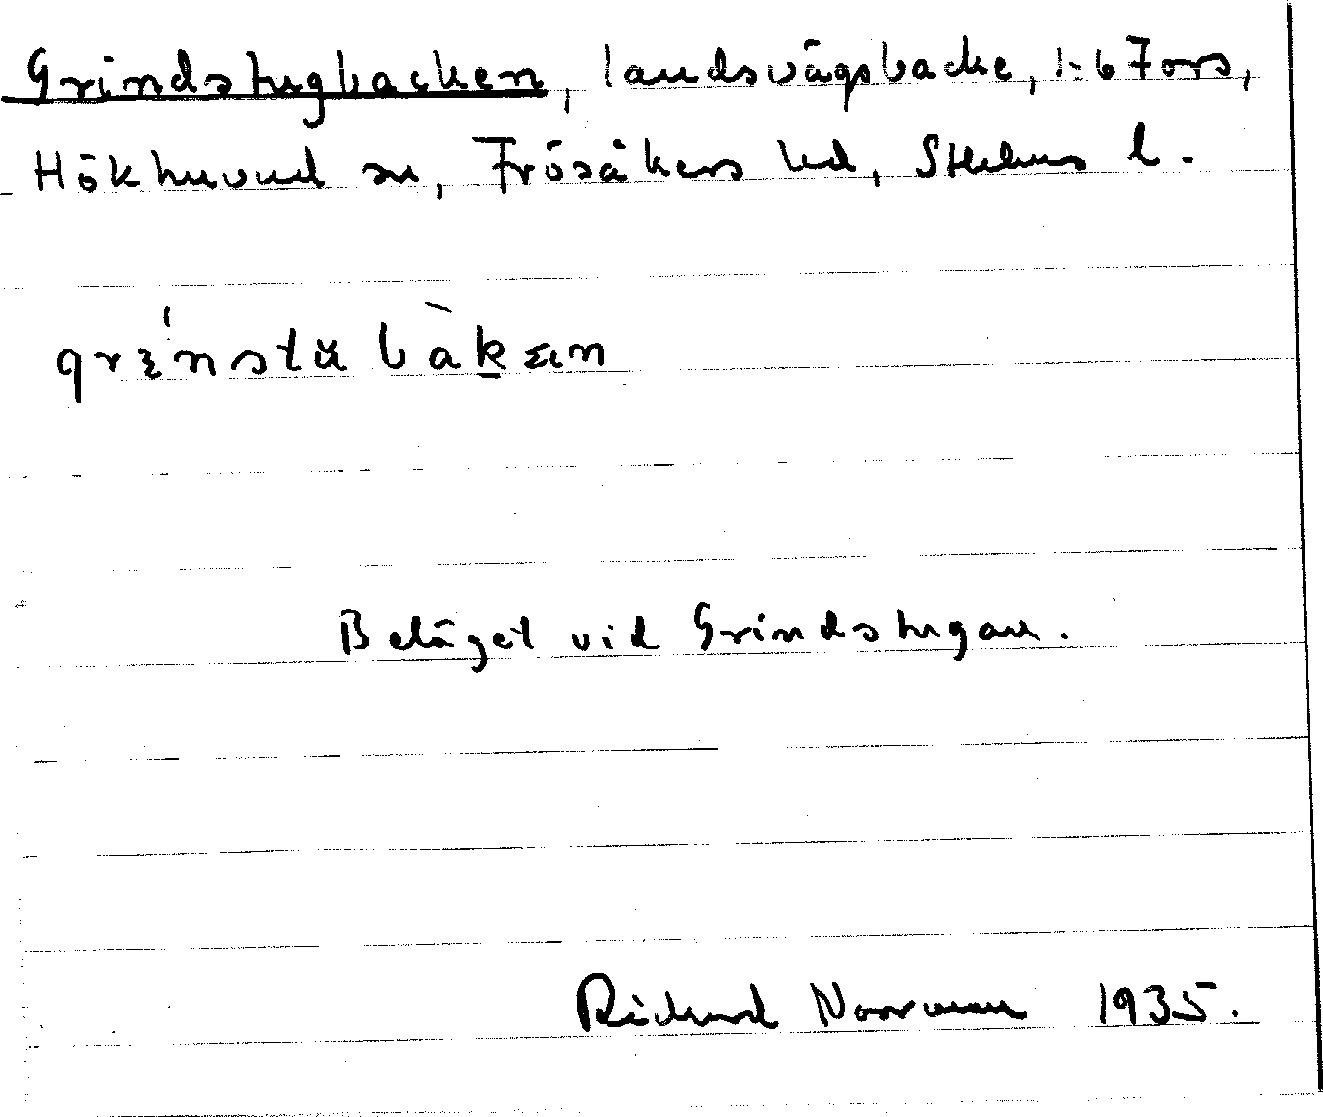 Grindstugbacken, landsvägsbacke, 1:6 Fors,
Hökhuvud sn, Frösåkers hd, Sthlms l.
grinstu bàkan
Beläget vid Grindstugan.
Richard Norrman 1935.